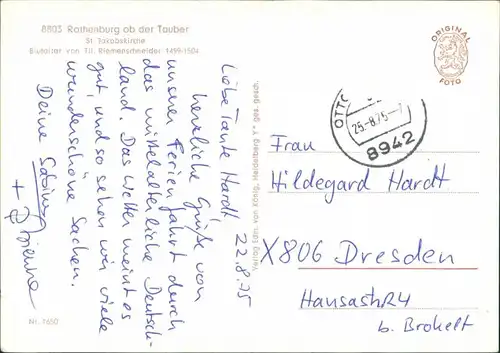 8803 Rothenburg ob der Tauber
St. Jakobskirche
Blutaltar von Til. Riemenschneider 1499-1504
ORIGINAL
FOTO
22.8.75
Liebe Tante Hardt,
herzliche Grüße von
unserer Ferienfahrt durch
das mittelalterliche Deutsch-
land. Das Wetter meint es
gut, und so sehen wir viele
wunderschöne Sachen.
Deine Sabine
+
Nr. 1660
Verlag Edm. von König, Heidelberg · ges. gesch.
OTTO
25.-8.75-
8942
Frau
Hildegard Hardt
X806 Dresden
Hansastr. 24
b. Brokelt